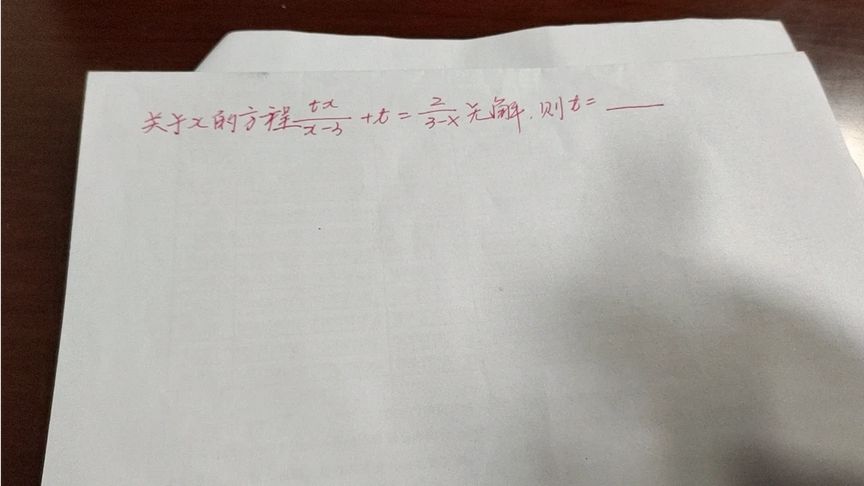 关于x的方程 tx/(x-3) + t = 2/(3-x) 无解,则t=____